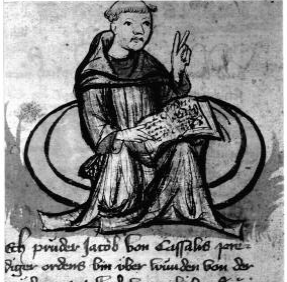 Ich prüder Jacob von Cassalis pre
diger ordens bin über wunden von der